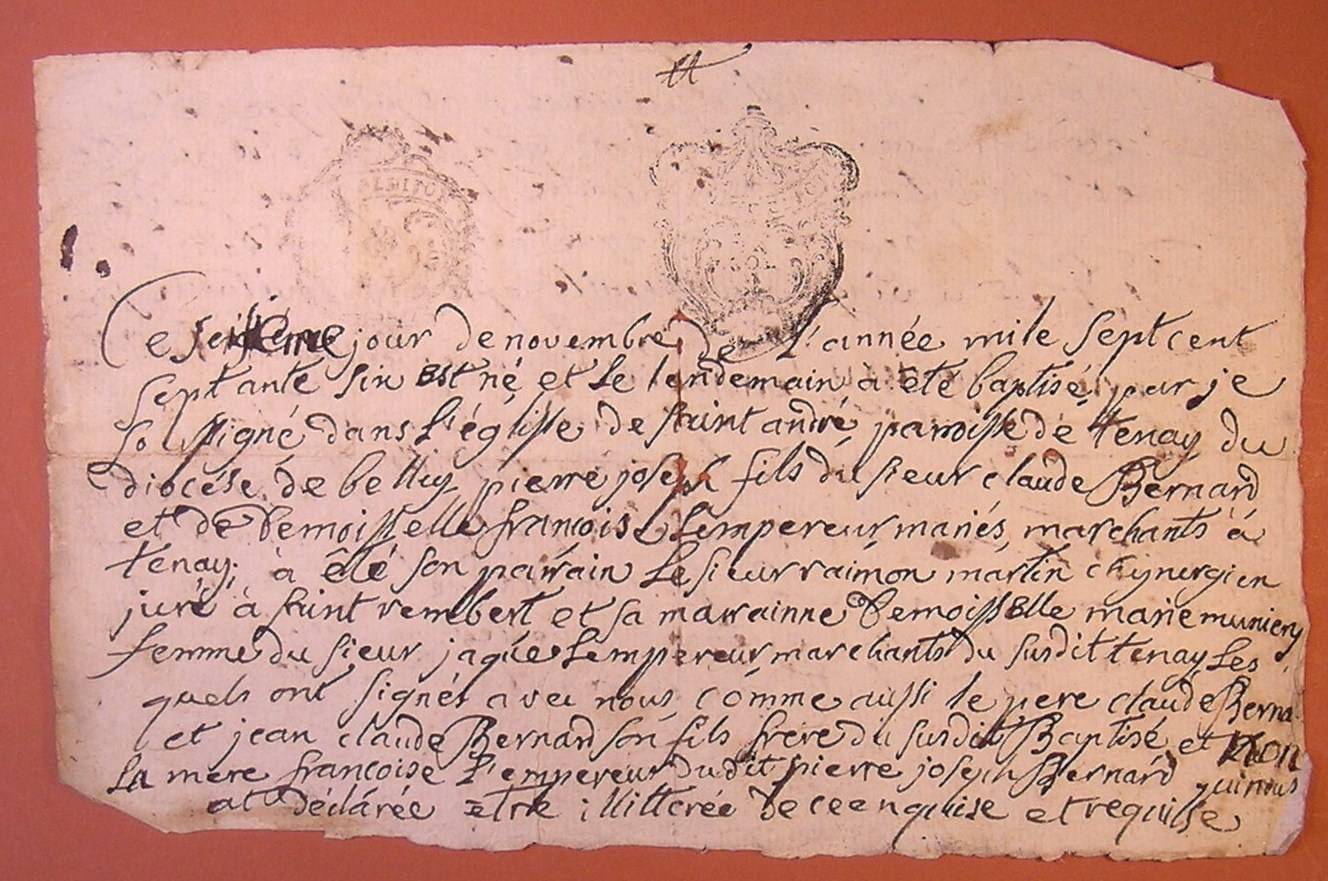 tt
Ce seiziéme jour de novembre de l'année mile sept cent
septante six est né et le lendemain a été baptisé par je
so ssigné dans l'églisse de saint andré paroisse de tenay du
diocése de belley pierre joseph fils du sieur claude Bernard
et de demoisselle francoise Lempereur mariés, marchants à
tenay; à êté son parrain le sieur raimon martin chyrurgien
juré à saint rembert et sa marrainne demoisselle marie muniery
femme du sieur jaque Lempereur marchants du susdit tenay les
quels ont signés avec nous comme aussi le pere claude Berna
et jean claude Bernard son fils frere du susdit Baptisé et non
la mere francoise L'empereur dudit pierre joseph Bernard qui nous
at déclárée etre illitterée de ce enquise et requisse